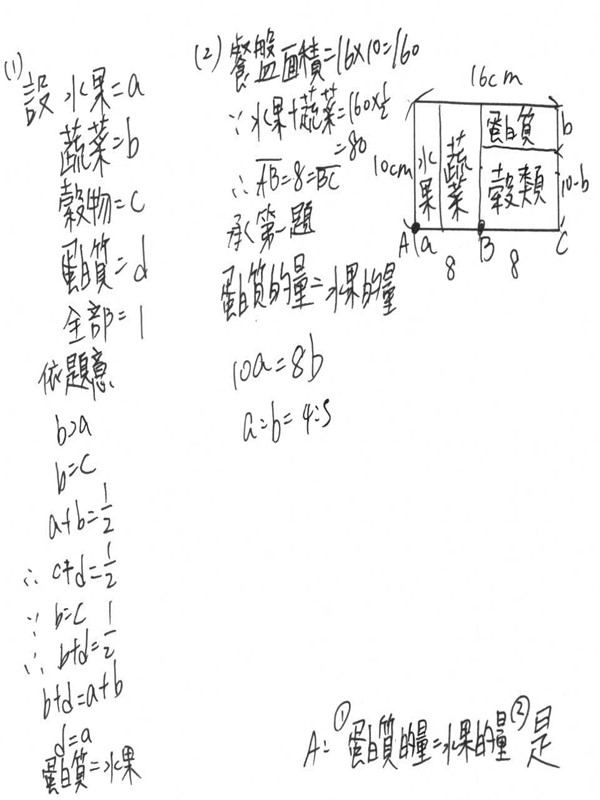 (1)
設 水果=a
蔬菜=b
穀物=c
蛋白質=d
全部=1
依題意
b>a
b=c
a+b=1/2
∴ c+d=1/2
∵ b=c
∴ b+d=1/2
b+d=a+b
d=a
蛋白質=水果
(2) 餐盤面積=16×10=160
∵ 水果+蔬菜=160×1/2
=80
∴ AB=8=BC
承第一題
蛋白質的量=水果的量
10a=8b
a:b=4:5
16cm
10cm
水果
蔬菜
蛋白質
穀類
b
10-b
A
a
B
C
8
8
A: ① 蛋白質的量=水果的量 ② 是